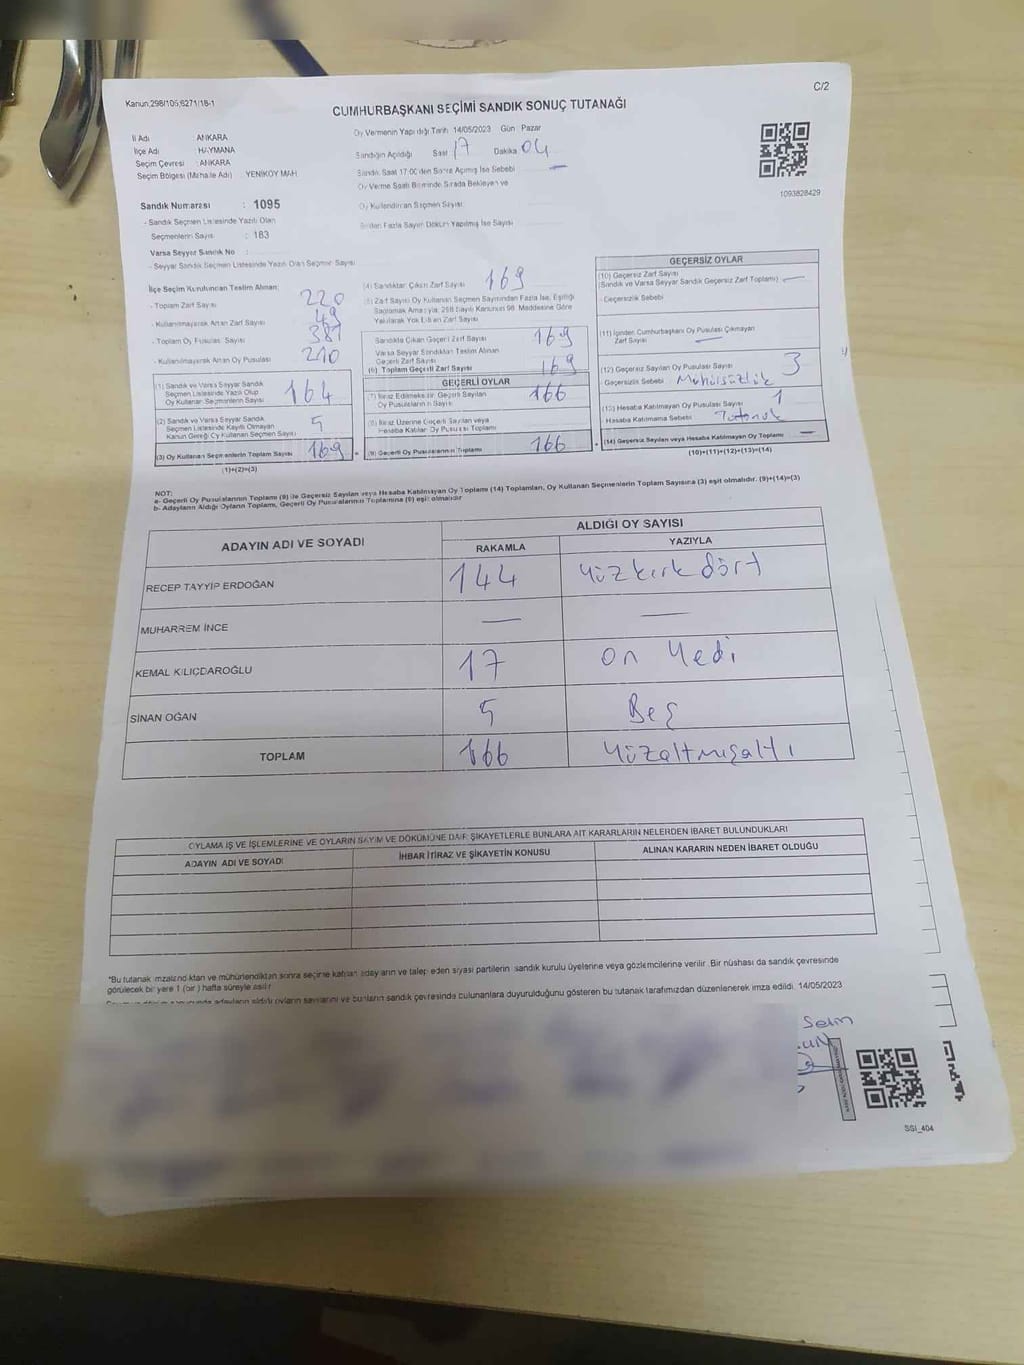 Kanun;298/105;6271/18-1
C/2
CUMHURBAŞKANI SEÇİMİ SANDIK SONUÇ TUTANAĞI
İl Adı ANKARA
İlçe Adı HAYMANA
Seçim Çevresi : ANKARA
Seçim Bölgesi (Mahalle Adı) YENİKÖY MAH
Oy Vermenin Yapıldığı Tarih 14/05/2023 Gün Pazar
Sandığın Açıldığı Saat 17 Dakika 04
Sandık Saat 17:00'den Sonra Açılmış İse Sebebi —
Oy Verme Saati Bitiminde Sırada Bekleyen ve
Oy Kullandırılan Seçmen Sayısı
Birden Fazla Sayım Döküm Yapılmış İse Sayısı
1093828429
Sandık Numarası : 1095
- Sandık Seçmen Listesinde Yazılı Olan
Seçmenlerin Sayısı : 183
Varsa Seyyar Sandık No :
- Seyyar Sandık Seçmen Listesinde Yazılı Olan Seçmen Sayısı
İlçe Seçim Kurulundan Teslim Alınan:
- Toplam Zarf Sayısı 220
- Kullanılmayarak Artan Zarf Sayısı 49
- Toplam Oy Pusulası Sayısı 381
- Kullanılmayarak Artan Oy Pusulası 210
(1) Sandık ve Varsa Seyyar Sandık
Seçmen Listesinde Yazılı Olup
Oy Kullanan Seçmenlerin Sayısı 164
(2) Sandık ve Varsa Seyyar Sandık
Seçmen Listesinde Kayıtlı Olmayan
Kanun Gereği Oy Kullanan Seçmen Sayısı 5
(3) Oy Kullanan Seçmenlerin Toplam Sayısı 169
(1)+(2)=(3)
(4) Sandıktan Çıkan Zarf Sayısı 169
(5) Zarf Sayısı Oy Kullanan Seçmen Sayısından Fazla İse, Eşitliği
Sağlamak Amacıyla; 298 Sayılı Kanunun 98. Maddesine Göre
Yakılarak Yok Edilen Zarf Sayısı
Sandıkta Çıkan Geçerli Zarf Sayısı 169
Varsa Seyyar Sandıktan Teslim Alınan
Geçerli Zarf Sayısı
(6) Toplam Geçerli Zarf Sayısı 169
GEÇERLİ OYLAR
(7) İtiraz Edilmeksizin Geçerli Sayılan
Oy Pusulalarının Sayısı 166
(8) İtiraz Üzerine Geçerli Sayılan veya
Hesaba Katılan Oy Pusulası Toplamı
(9) Geçerli Oy Pusulalarının Toplamı 166
GEÇERSİZ OYLAR
(10) Geçersiz Zarf Sayısı
(Sandık ve Varsa Seyyar Sandık Geçersiz Zarf Toplamı) —
- Geçersizlik Sebebi
(11) İçinden Cumhurbaşkanı Oy Pusulası Çıkmayan
Zarf Sayısı —
(12) Geçersiz Sayılan Oy Pusulası Sayısı 3
- Geçersizlik Sebebi Mühürsüzlük
(13) Hesaba Katılmayan Oy Pusulası Sayısı 1
Hesaba Katılmama Sebebi
(14) Geçersiz Sayılan veya Hesaba Katılmayan Oy Toplamı —
(10)+(11)+(12)+(13)=(14)
NOT:
a- Geçerli Oy Pusulalarının Toplamı (9) ile Geçersiz Sayılan veya Hesaba Katılmayan Oy Toplamı (14) Toplamları, Oy Kullanan Seçmenlerin Toplam Sayısına (3) eşit olmalıdır. (9)+(14)=(3)
b- Adayların Aldığı Oyların Toplamı, Geçerli Oy Pusulalarının Toplamına (9) eşit olmalıdır
ADAYIN ADI VE SOYADI
ALDIĞI OY SAYISI
RAKAMLA YAZIYLA
RECEP TAYYİP ERDOĞAN 144 Yüzkırkdört
MUHARREM İNCE — —
KEMAL KILIÇDAROĞLU 17 On Yedi
SİNAN OĞAN 5 Beş
TOPLAM 166 Yüzaltmışaltı
OYLAMA İŞ VE İŞLEMLERİNE VE OYLARIN SAYIM VE DÖKÜMÜNE DAİR ŞİKAYETLERLE BUNLARA AİT KARARLARIN NELERDEN İBARET BULUNDUKLARI
ADAYIN ADI VE SOYADI İHBAR İTİRAZ VE ŞİKAYETİN KONUSU ALINAN KARARIN NEDEN İBARET OLDUĞU
*Bu tutanak imzalandıktan ve mühürlendikten sonra seçime katılan adayların ve talep eden siyasi partilerin sandık kurulu üyelerine veya gözlemcilerine verilir. Bir nüshası da sandık çevresinde
görülecek bir yere 1 (bir) hafta süreyle asılır
adayların aldığı oyların sayılarını ve bunların sandık çevresinde bulunanlara duyurulduğunu gösteren bu tutanak tarafımızdan düzenlenerek imza edildi. 14/05/2023
Selin
SSI_404